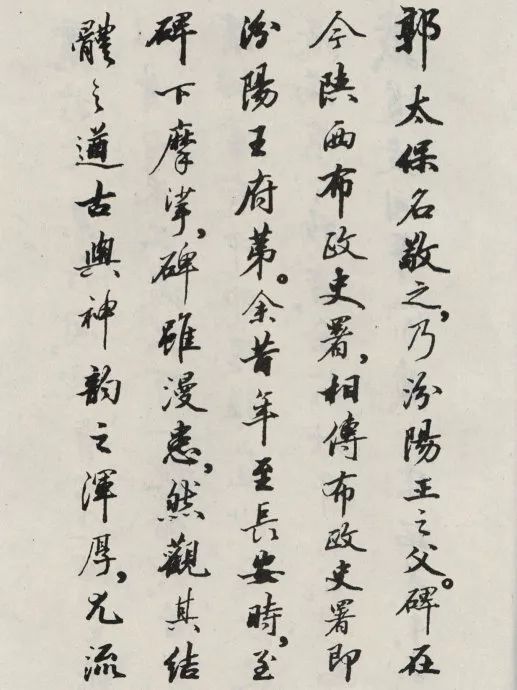 郭太保名敬之，乃汾陽王之父。碑在
今陝西布政史署，相傳布政史署即
汾陽王府第。余昔年至長安時，至
碑下摩挲，碑雖漫患，然觀其結
體之遒古與神韵之渾厚，尤流